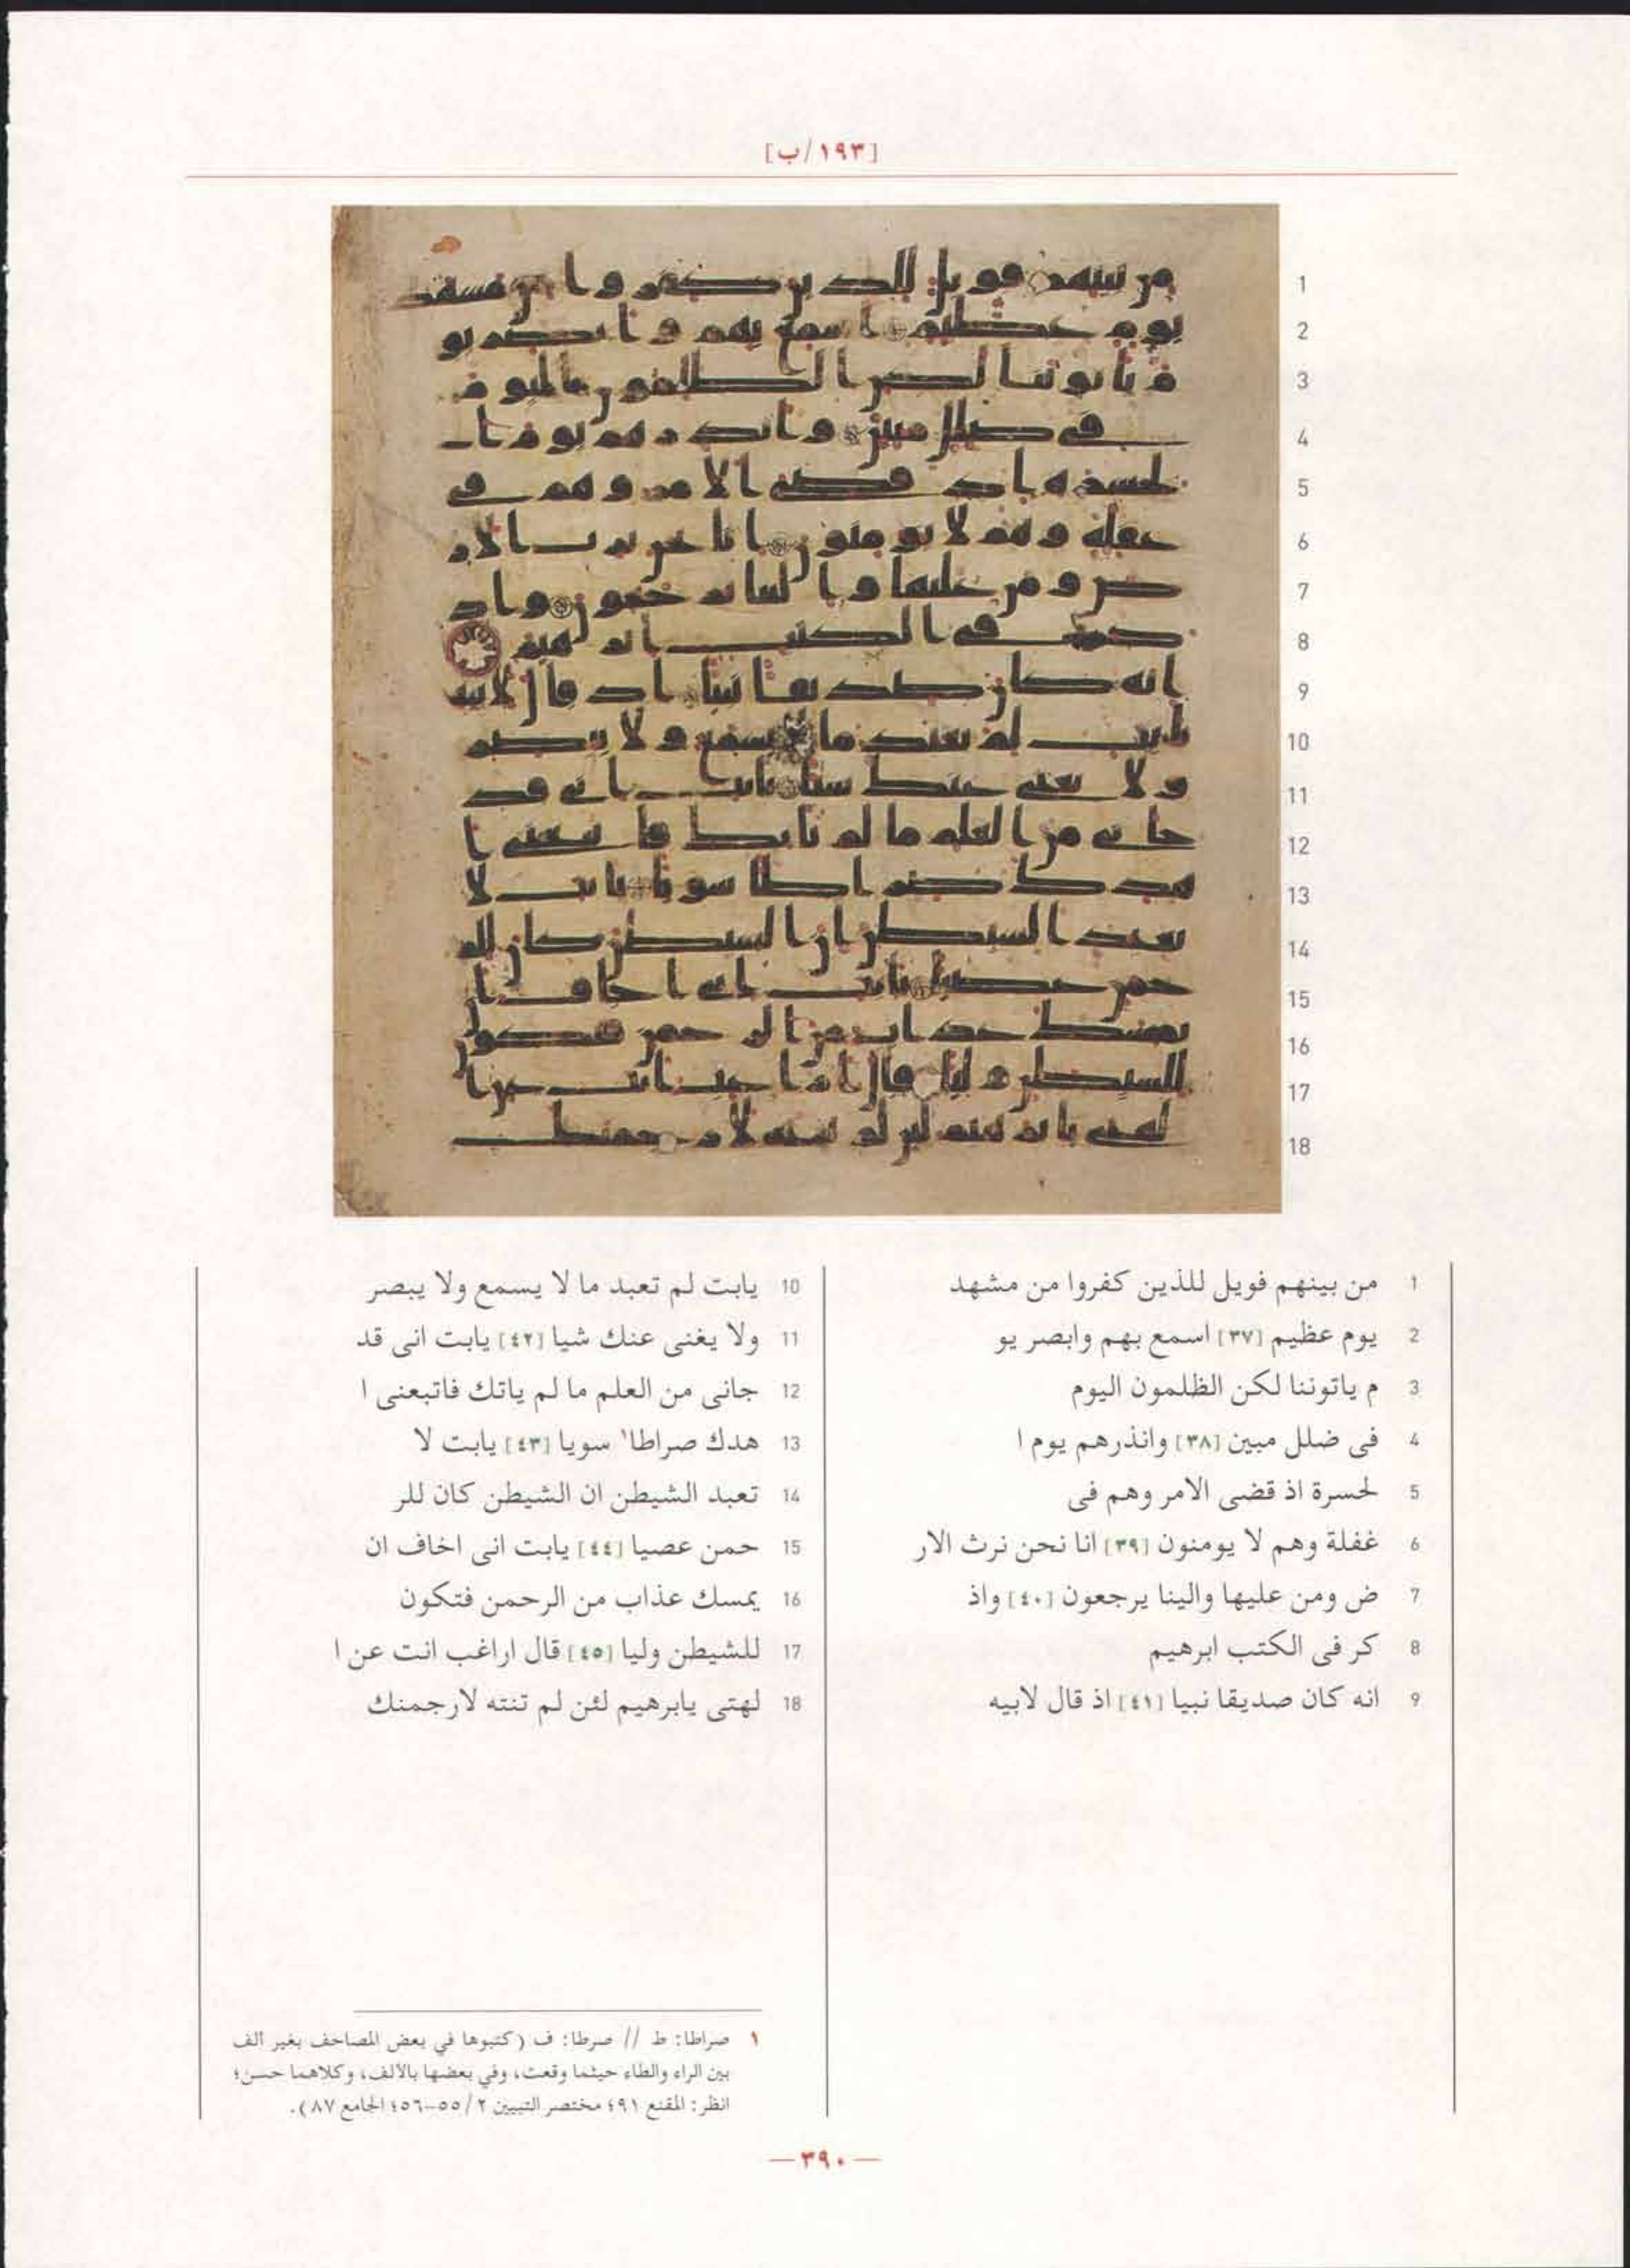 [١٩٣/ب]
1 من بينهم فويل للذين كفروا من مشهد
2 يوم عظيم [٣٧] اسمع بهم وابصر يو
3 م ياتوننا لكن الظلمون اليوم
4 فى ضلل مبين [٣٨] وانذرهم يوم ا
5 لحسرة اذ قضى الامر وهم فى
6 غفلة وهم لا يومنون [٣٩] انا نحن نرث الار
7 ض ومن عليها والينا يرجعون [٤٠] واذ
8 كر فى الكتب ابرهيم
9 انه كان صديقا نبيا [٤١] اذ قال لابيه
10 يابت لم تعبد ما لا يسمع ولا يبصر
11 ولا يغنى عنك شيا [٤٢] يابت انى قد
12 جانى من العلم ما لم ياتك فاتبعنى ا
13 هدك صراطا١ سويا [٤٣] يابت لا
14 تعبد الشيطن ان الشيطن كان للر
15 حمن عصيا [٤٤] يابت انى اخاف ان
16 يمسك عذاب من الرحمن فتكون
17 للشيطن وليا [٤٥] قال اراغب انت عن ا
18 لهتى يابرهيم لئن لم تنته لارجمنك
١ صراطا: ط // صرطا: ف (كتبوها في بعض المصاحف بغير ألف
بين الراء والطاء حيثما وقعت، وفي بعضها بالألف، وكلاهما حسن؛
انظر: المقنع ٩١؛ مختصر التبيين ٢/٥٥-٥٦؛ الجامع ٨٧).
—٣٩٠—